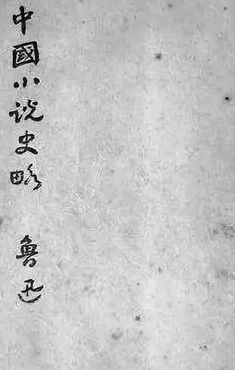 中國小説史略 魯迅